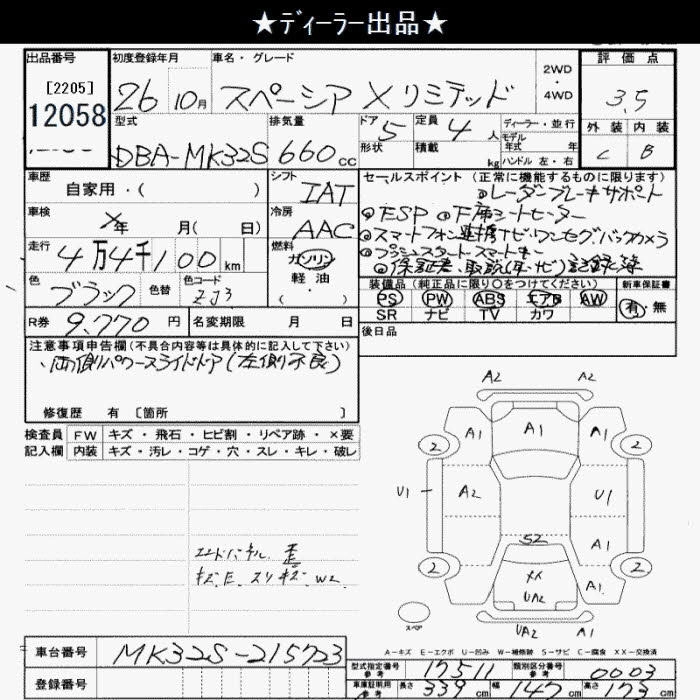 ★ディーラー出品★
出品番号
[2205]
12058
初度登録年月
26 10月
車名・グレード
スペーシア X リミテッド
2WD
・
4WD
評価点
3.5
外装 内装
C B
型式
DBA-MK32S
排気量
660cc
ドア 5
形状
定員 4人
積載 kg
ディーラー・並行
モデル
年式 年
ハンドル 左・右
車歴
自家用・( )
シフト
IAT
車検
X年 月( 日)
冷房
AAC
走行
4万4千100km
燃料
ガソリン
軽油
・
( )
色
ブラック
色替
色コード
ZJ3
R券 9,770円
名変期限 月 日
セールスポイント (正常に機能するものに限ります)
◎レーダーブレーキサポート
◎ESP ◎下席シートヒーター
◎スマートフォン連携ナビ・ワンセグ・バックカメラ
◎プッシュスタート スマートキー
◎保証書、取説(車・ナビ)記録簿
装備品(純正品に限り○をつけてください)
PS PW ABS エアB AW
SR ナビ TV カワ
新車保証書
有・無
後日品
注意事項申告欄(不具合内容等は具体的に記入して下さい)
・両側パワースライドドア(左側不良)
修復歴 有 [箇所 ]
検査員
記入欄
FW キズ・飛石・ヒビ割・リペア跡・×要
内装 キズ・汚レ・コゲ・穴・スレ・キレ・破レ
エンドパネル 歪
キズ・E、スリキズ、W2
A2 A2
2 A1 A1 A1 2
U1 A2 U1
S2 A1
2 XX A1 2
UA2
UA2 A1
スペア
A-キズ E-エクボ U-凹み W-補修跡 S-サビ C-腐食 XX-交換済
車台番号 MK32S-215723
登録番号
型式指定番号
参考
17511
類別区分番号
参考
0003
車庫証明用
参考
長さ 339cm 幅 147cm 高さ 173cm